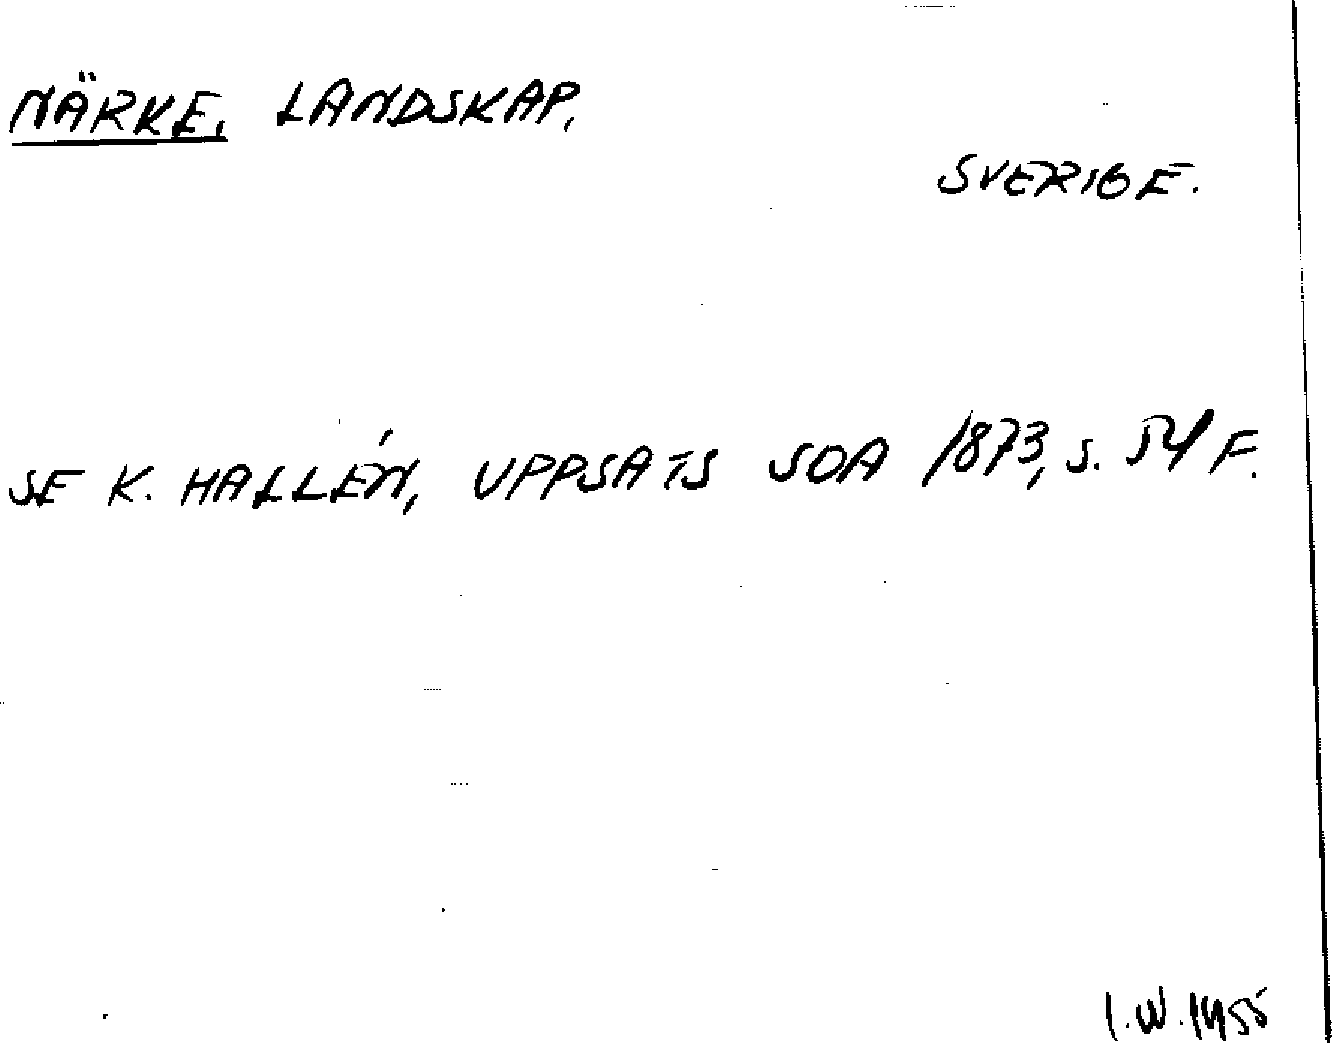 NÄRKE, LANDSKAP,
SVERIGE.
SE K. HALLÉN, UPPSATS SOA 1873, S. 54 F.
I.W. 1955